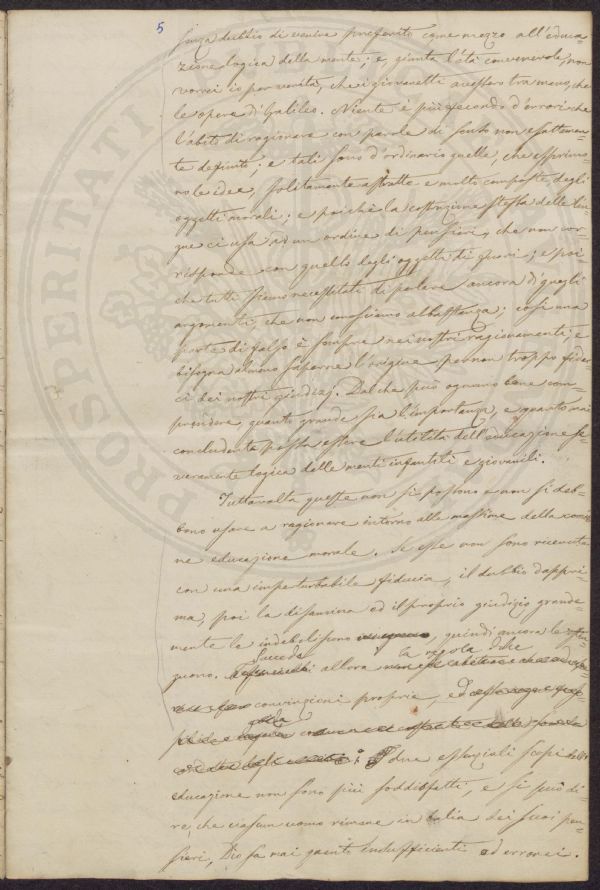 5
senza dubbio di venire preferito come mezzo all'educa=
zione logica della mente; e, giunta l'età convenevole, non
vorrei io per verità, che i giovanetti avessero tra mano, che
le opere di Galileo. Niente è più fecondo d'errori che
l'abito di ragionare con parole di senso non esattamen=
te definito; e tali sono d'ordinario quelle, che esprimo=
no le idee, solitamente astratte e molto composte, degli
oggetti morali; e poichè la costruzione stessa delle lin=
gue ci usa ad un ordine di pensieri, che non cor=
risponde con quello degli oggetti di fuori; e poi
che tutti siamo necessitati di parlare ancora di quegli
argomenti, che non conosciamo abbastanza; così una
parte di falso è sempre nei nostri ragionamenti; e
bisogna almeno saperne l'origine per non troppo fidar=
ci dei nostri giudizj. Dal che può ognuno bene com=
prendere quanto grande sia l'importanza, e quanto mai
concludente possa essere l'utilità dell'educazione se=
veramente logica delle menti infantili e giovanili.
Tuttavolta queste non si possono e non si deb=
bono usare a ragionare intorno alle massime della
ne educazione morale. Se esse non sono ricevute
con una imperturbabile fiducia, il dubbio dappri=
ma, poi la disamina ed il proprio giudizio grande=
mente le indeboliscono, quindi ancora le
guono. allora
la regola delle
convinzioni proprie,
due essenziali scopi dell'
educazione non sono più soddisfatti, e si può di=
re, che ciascun uomo rimane in balia dei suoi pen=
sieri, Dio sa mai quanti insufficienti ed erronei.